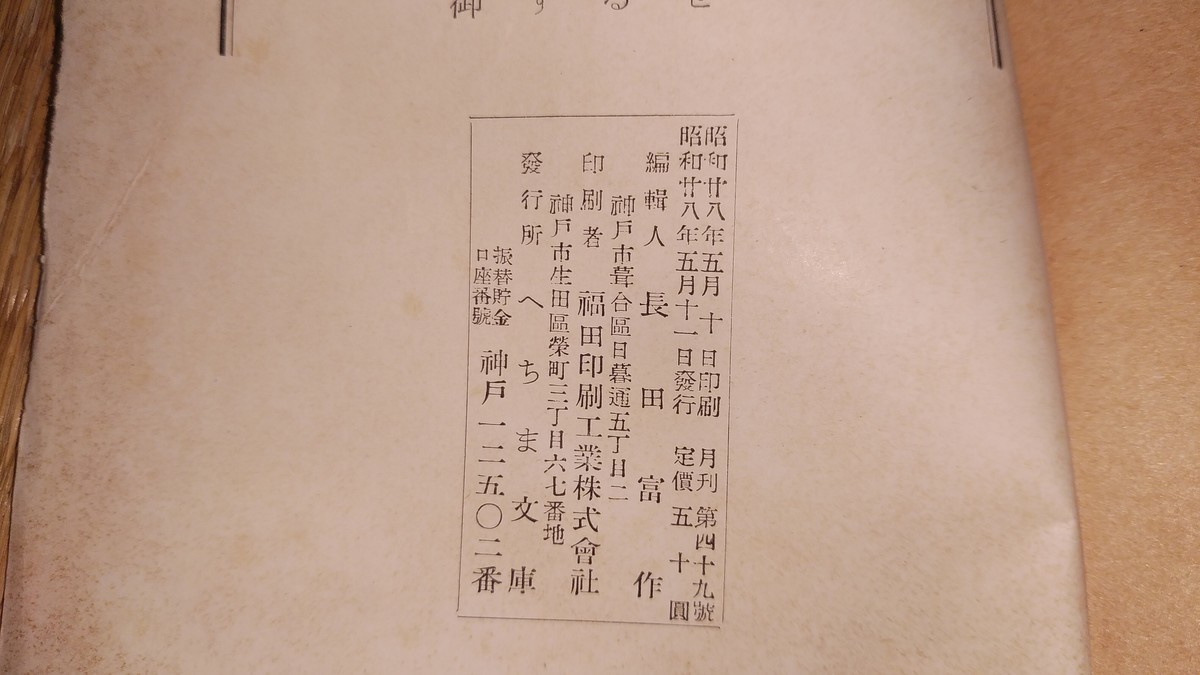 御するむ
昭和廿八年五月十日印刷 月刊 第四十九號
昭和廿八年五月十一日發行 定價五十圓
編輯人 長田富作
神戸市葺合區日暮通五丁目二
印刷者 福田印刷工業株式會社
神戸市生田區榮町三丁目六七番地
發行所 へちま文庫
振替貯金
口座番號 神戸一二五〇二番